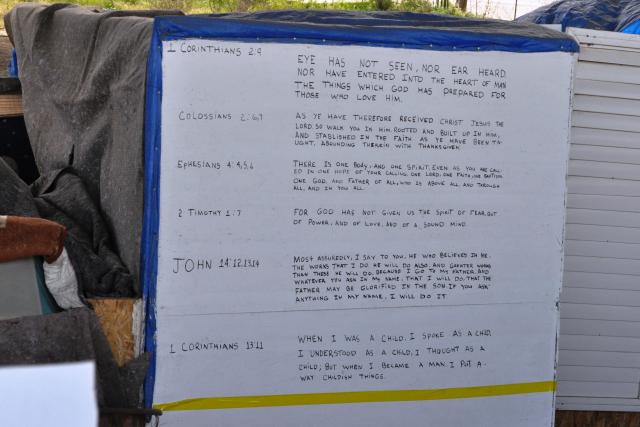 1 CORINTHIANS 2:9
EYE HAS NOT SEEN, NOR EAR HEARD
NOR HAVE ENTERED INTO THE HEART OF MAN
THE THINGS WHICH GOD HAS PREPARED FOR
THOSE WHO LOVE HIM.
COLOSSIANS 2:6,7
AS YE HAVE THEREFORE RECEIVED CHRIST JESUS THE
LORD, SO WALK YOU IN HIM, ROOTED AND BUILT UP IN HIM,
AND STABLISHED IN THE FAITH AS YE HAVE BEEN TA-
UGHT, ABOUNDING THEREIN WITH THANKSGIVEN
EPHESIANS 4:4,5,6
THERE IS ONE BODY, AND ONE SPIRIT, EVEN AS YOU ARE CALL-
ED IN ONE HOPE OF YOUR CALLING, ONE LORD, ONE FAITH, ONE BAPTISM
ONE GOD, AND FATHER OF ALL, WHO IS ABOVE ALL AND THROUGH
ALL, AND IN YOU ALL.
2 TIMOTHY 1:7
FOR GOD HAS NOT GIVEN US THE SPIRIT OF FEAR, BUT
OF POWER, AND OF LOVE, AND OF A SOUND MIND.
JOHN 14:12,13,14
MOST ASSUREDLY, I SAY TO YOU, HE WHO BELIEVED IN ME,
THE WORKS THAT I DO HE WILL DO ALSO, AND GREATER WORKS
THAN THESE HE WILL DO, BECAUSE I GO TO MY FATHER, AND
WHATEVER YOU ASK IN MY NAME, THAT I WILL DO, THAT THE
FATHER MAY BE GLORIFIED IN THE SON. IF YOU ASK
ANYTHING IN MY NAME, I WILL DO IT
1 CORINTHIANS 13:11
WHEN I WAS A CHILD, I SPOKE AS A CHILD,
I UNDERSTOOD AS A CHILD, I THOUGHT AS A
CHILD; BUT WHEN I BECAME A MAN I PUT A-
WAY CHILDISH THINGS.